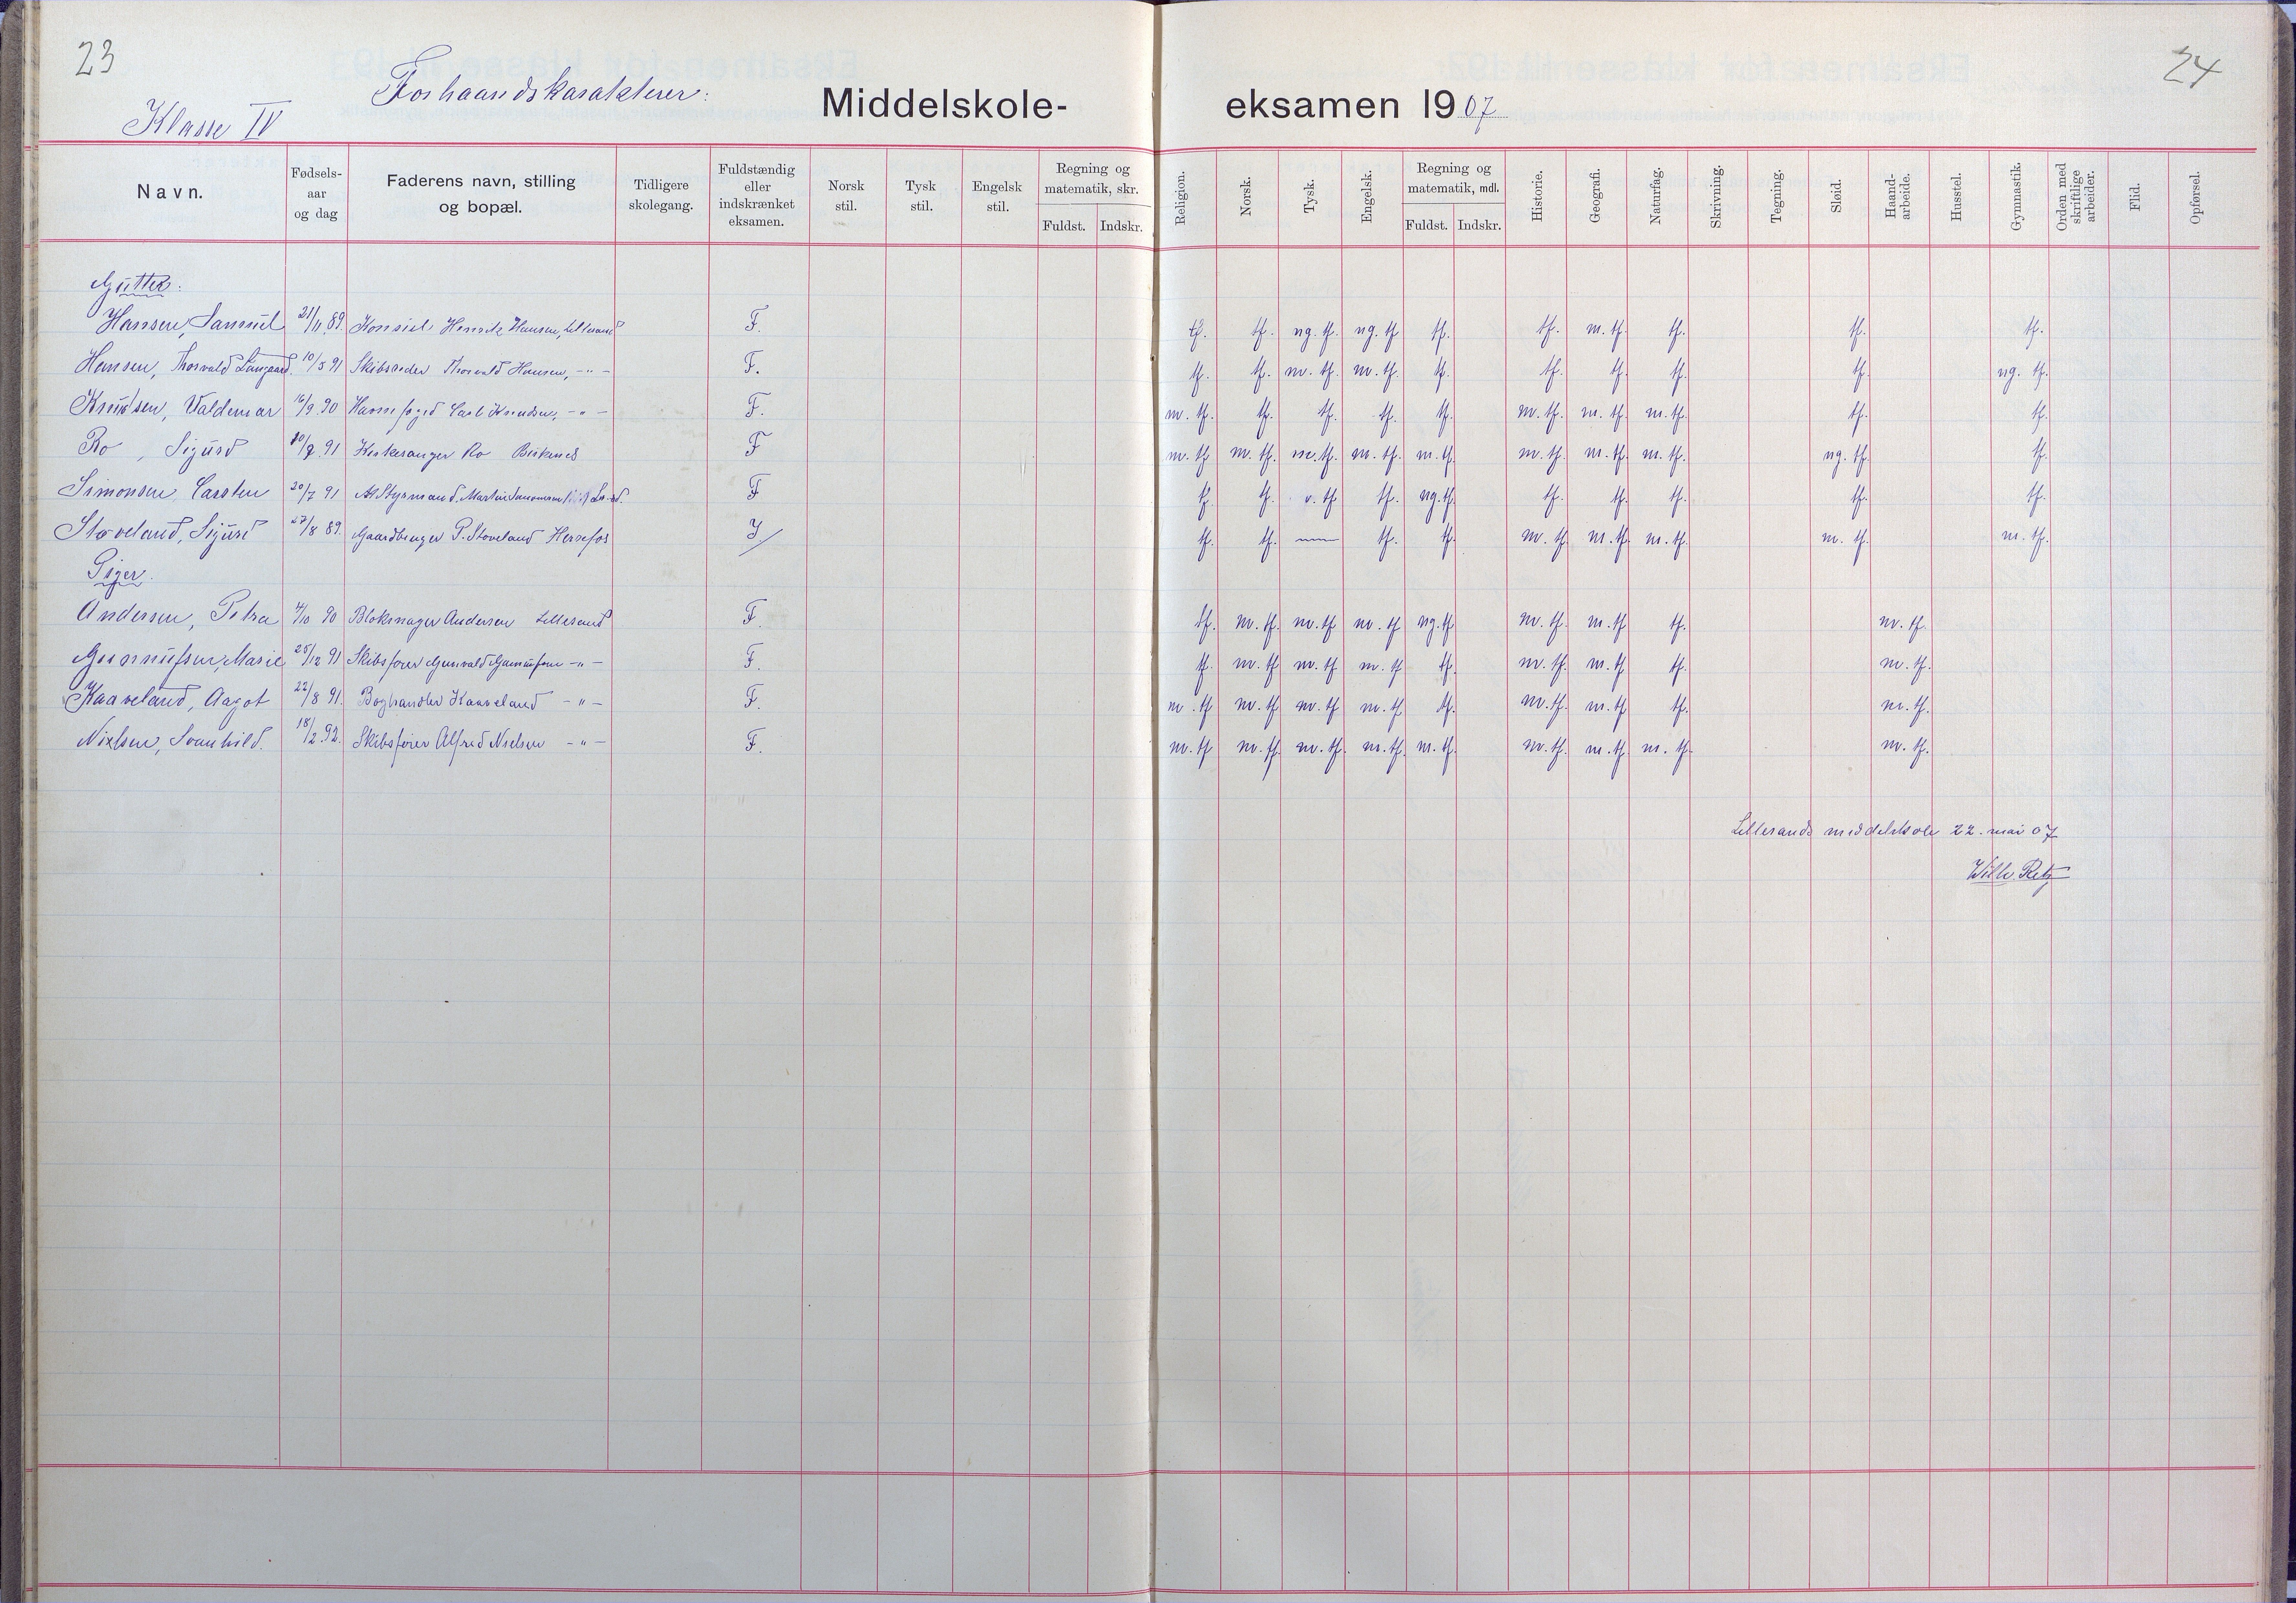 23
24
Forhaandskarakterer:
Klasse IV
Middelskole-eksamen 1907
Navn. Fødsels-aar og dag Faderens navn, stilling og bopæl. Tidligere skolegang. Fuldstændig eller indskrænket eksamen. Norsk stil. Tysk stil. Engelsk stil. Regning og matematik, skr. Fuldst. Indskr. Religion. Norsk. Tysk. Engelsk. Regning og matematik, mdl. Fuldst. Indskr. Historie. Geografi. Naturfag. Skrivning. Tegning. Sløid. Haand-arbeide. Husstel. Gymnastik. Orden med skriftlige arbeider. Flid. Opførsel.
Gutter:
Hansen, Samuel 21/11 89. Konsul Henrik Hansen, Lillesand F. tf. tf. ng. tf. ng. tf tf. tf. m. tf. tf. tf. tf.
Hansen, Thorvald Langaard. 10/5 91 Skibsreder Thorvald Hansen, -"- F. tf. tf. m. tf. m. tf. tf. tf. tf. tf. tf. ng. tf.
Knudsen, Valdemar 16/9 90 Havnefoged Carl Knudsen, -"- F. m. tf. tf. tf. tf. tf. m. tf. m. tf. m. tf. tf. tf.
Ro, Sigurd 10/7 91 Kirkesanger Ro Birkenes F m. tf. m. tf. m. tf. m. tf. m. tf. m. tf. m. tf. m. tf. ng. tf. tf.
Simonsen, Carsten 20/7 91 Styrmand Martin F tf. tf. tf tf. ng. tf. tf. tf. tf. tf. tf.
Støveland, Sigurd 27/8 89. Gaardbruger P. Støveland Herefos I. tf. tf. — tf. tf. m. tf. m. tf. m. tf. m. tf. m. tf.
Piger.
Andersen, Petra /10 90 Blokmager Andersen Lillesand F. tf. m. tf. m. tf m. tf ng. tf. m. tf. m. tf tf. m. tf.
Gunnufsen, Marie 25/12 91 Skibsfører Gunvald Gunnufsen -"- F. tf. m. tf. m. tf m. tf tf. m. tf. m. tf tf. m. tf.
Kaaveland, Aagot 22/8 91. Boghandler Kaaveland -"- F. m. tf m. tf. m. tf m. tf. tf. m. tf. m. tf tf. m. tf.
Nielsen, Svanhild. 18/2 92. Skibsfører Alfred Nielsen -"- F. m. tf m. tf. m. tf. m. tf. m. tf. m. tf. m. tf. m. tf. m. tf.
Lillesands middelskole 22. mai 07
Wilh. Retz